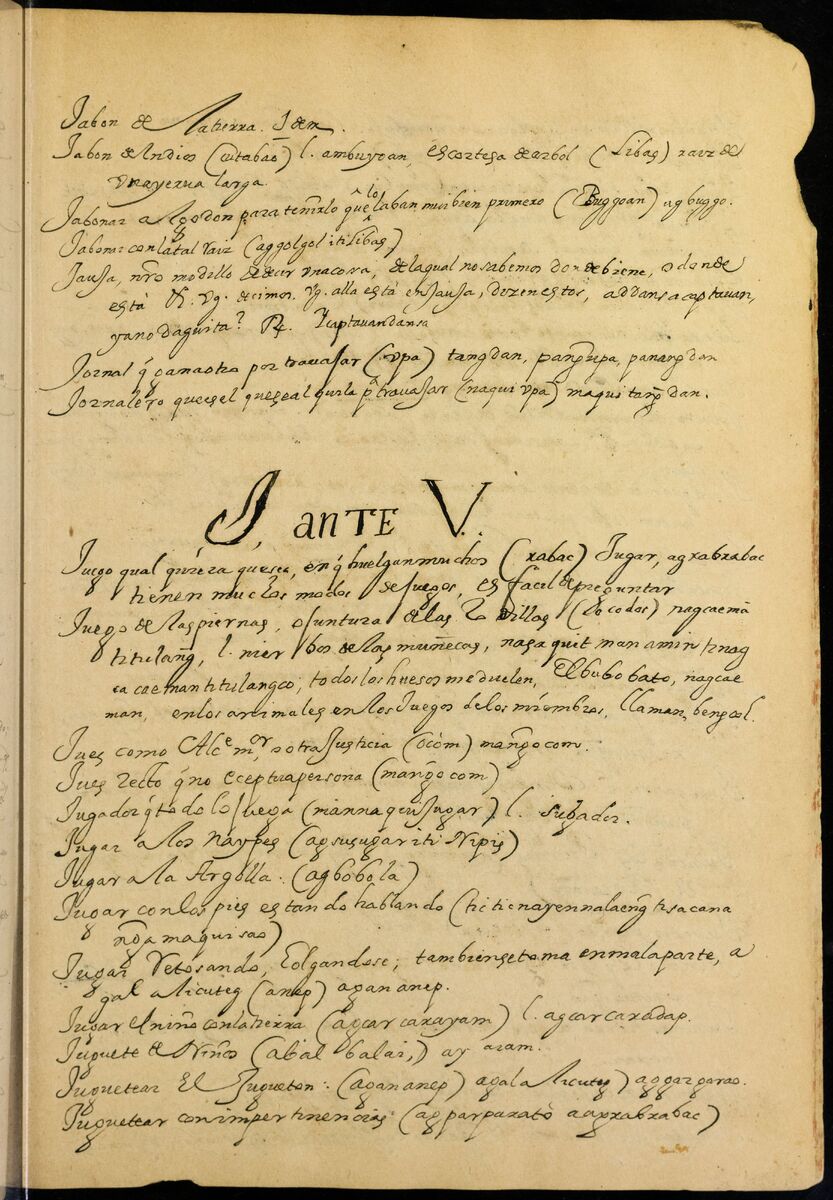 Jabon de la tierra. Idem.
Jabon de Indios (cutabao) l. ambuyoan, es cortesa de arbol (Libas) raiz de
vna yerua larga.
Jabonar algodon para teñirlo q̃ lo laban mui bien primero (Buggoan) ag buggo.
Jabonar con la tal raiz (aggolgol iti Libas)
Jauja, nr̃o modillo de decir vna cossa, de la qual no sabemos donde biene, o donde
està vg. decimos. vg. alla està en Jauja, dizen estos, addansa captauan,
yano daquita? R. Ycaptauandansa
Jornal q̃ gana otro por trauajar (vpa) tangdan, pang̃upa, panang̃dan
Jornalero que es el que se alquila pa trauajar (naqui vpa) maqui tang̃dan.
J, anTE V.
Juego qual quiera que sea, en q̃ huelgan muchos (rabac) Jugar, agrabrabac
tienen muchos modos de juegos, es facil de preguntar
Juego de las piernas, o juntura de las Rodillas (bocodos) nagcaemã
ti tulang̃, l. nier bos de las muñecas, nasaquit man amin ti nag
ca caeman ti tulangco, todos los huesos me duelen, El bubobato, nagcae
man, en los animales en los Juegos de los miembros, llaman, bengẽl.
Jues como Alce mor, o otra Justicia (ocom) mang̃ocom.
Jues recto q̃ no eceptua persona (mang̃ocom)
Jugador q̃ todo lo juega (mannaquijugar) l. jugador.
Jugar a los Naypes (agsusugar iti Nipis)
Jugar a la Argolla: (agbobola)
Jugar con los pies estando hablando (tictic nayennalaeng̃ ti sacana
ng̃a maquisao)
Jugar Retosando, Holgandose; tambien se toma en mala parte, a
gal alicuteg (anep) agananep.
Jugar el niño con la tierra (agcarcarayam) l. agcarcaradap.
Juguete de Niños (abal balai,) ay ayam.
Juguetear El Jugueton: (agananep) agalalicuteg) aggargarao.
Juguetear con impertinencias (agparparato agrabrabac)